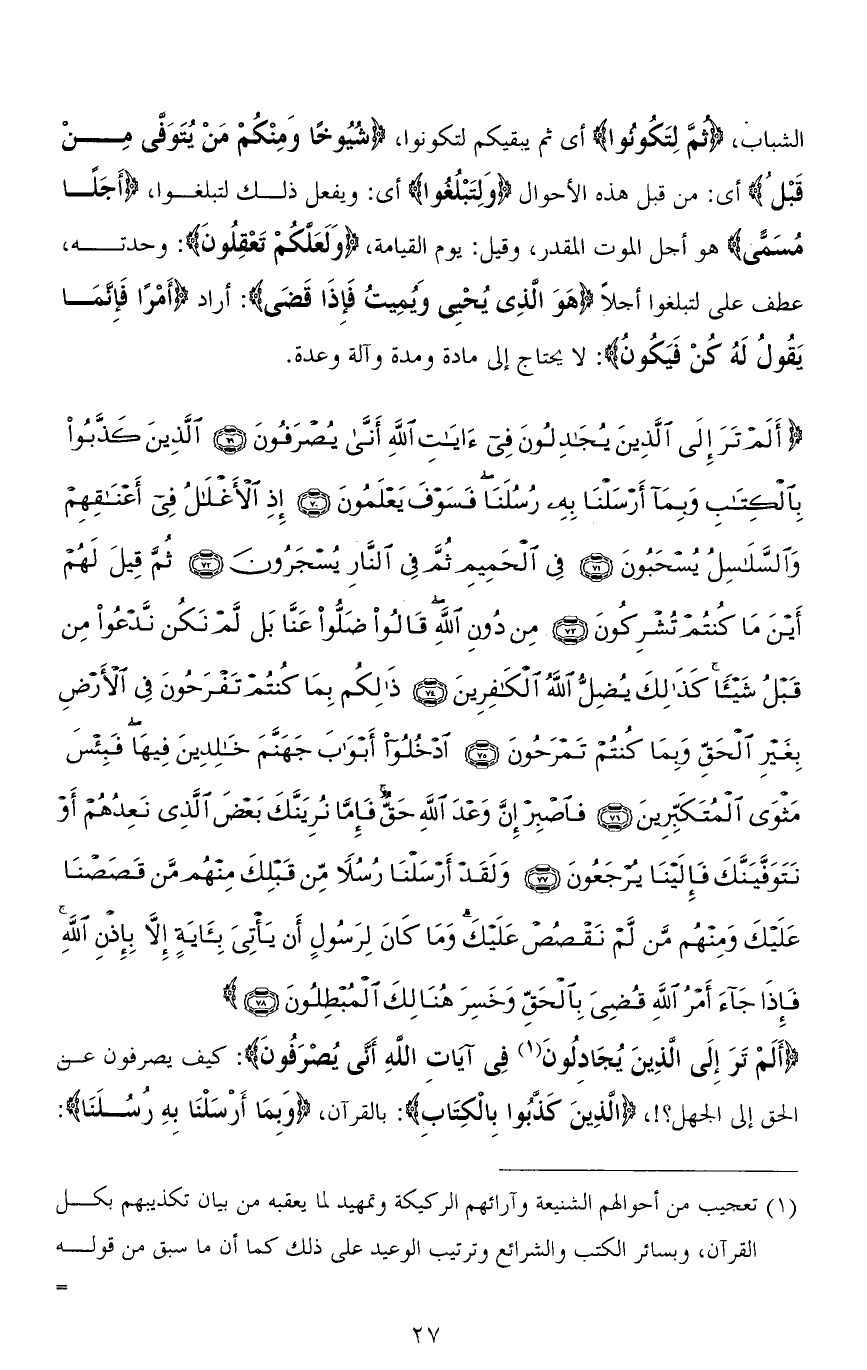 الشباب، ﴿ثُمَّ لِتَكُونُوا﴾ أى ثم يبقيكم لتكونوا، ﴿شُيُوخًا وَمِنْكُمْ مَنْ يُتَوَفَّى مِنْ
قَبْلُ﴾ أى: من قبل هذه الأحوال ﴿وَلِتَبْلُغُوا﴾ أى: ويفعل ذلك لتبلغوا، ﴿أَجَلًا
مُسَمًّى﴾ هو أجل الموت المقدر، وقيل: يوم القيامة، ﴿وَلَعَلَّكُمْ تَعْقِلُونَ﴾: وحدته،
عطف على لتبلغوا أجلاً ﴿هُوَ الَّذِى يُحْيِى وَيُمِيتُ فَإِذَا قَضَى﴾: أراد ﴿أَمْرًا فَإِنَّمَا
يَقُولُ لَهُ كُنْ فَيَكُونُ﴾: لا يحتاج إلى مادة ومدة وآلة وعدة.
﴿أَلَمْ تَرَ إِلَى ٱلَّذِينَ يُجَٰدِلُونَ فِىٓ ءَايَٰتِ ٱللَّهِ أَنَّىٰ يُصْرَفُونَ ٦٩ ٱلَّذِينَ كَذَّبُوا۟
بِٱلْكِتَٰبِ وَبِمَآ أَرْسَلْنَا بِهِۦ رُسُلَنَا ۖ فَسَوْفَ يَعْلَمُونَ ٧٠ إِذِ ٱلْأَغْلَٰلُ فِىٓ أَعْنَٰقِهِمْ
وَٱلسَّلَٰسِلُ يُسْحَبُونَ ٧١ فِى ٱلْحَمِيمِ ثُمَّ فِى ٱلنَّارِ يُسْجَرُونَ ٧٢ ثُمَّ قِيلَ لَهُمْ
أَيْنَ مَا كُنتُمْ تُشْرِكُونَ ٧٣ مِن دُونِ ٱللَّهِ ۖ قَالُوا۟ ضَلُّوا۟ عَنَّا بَل لَّمْ نَكُن نَّدْعُوا۟ مِن
قَبْلُ شَيْـًٔا ۚ كَذَٰلِكَ يُضِلُّ ٱللَّهُ ٱلْكَٰفِرِينَ ٧٤ ذَٰلِكُم بِمَا كُنتُمْ تَفْرَحُونَ فِى ٱلْأَرْضِ
بِغَيْرِ ٱلْحَقِّ وَبِمَا كُنتُمْ تَمْرَحُونَ ٧٥ ٱدْخُلُوٓا۟ أَبْوَٰبَ جَهَنَّمَ خَٰلِدِينَ فِيهَا ۖ فَبِئْسَ
مَثْوَى ٱلْمُتَكَبِّرِينَ ٧٦ فَٱصْبِرْ إِنَّ وَعْدَ ٱللَّهِ حَقٌّ ۚ فَإِمَّا نُرِيَنَّكَ بَعْضَ ٱلَّذِى نَعِدُهُمْ أَوْ
نَتَوَفَّيَنَّكَ فَإِلَيْنَا يُرْجَعُونَ ٧٧ وَلَقَدْ أَرْسَلْنَا رُسُلًا مِّن قَبْلِكَ مِنْهُم مَّن قَصَصْنَا
عَلَيْكَ وَمِنْهُم مَّن لَّمْ نَقْصُصْ عَلَيْكَ ۗ وَمَا كَانَ لِرَسُولٍ أَن يَأْتِىَ بِـَٔايَةٍ إِلَّا بِإِذْنِ ٱللَّهِ ۚ
فَإِذَا جَآءَ أَمْرُ ٱللَّهِ قُضِىَ بِٱلْحَقِّ وَخَسِرَ هُنَالِكَ ٱلْمُبْطِلُونَ ٧٨﴾
﴿أَلَمْ تَرَ إِلَى الَّذِينَ يُجَادِلُونَ(١) فِى آيَاتِ اللَّهِ أَنَّى يُصْرَفُونَ﴾: كيف يصرفون عن
الحق إلى الجهل؟!، ﴿الَّذِينَ كَذَّبُوا بِالْكِتَابِ﴾: بالقرآن، ﴿وَبِمَا أَرْسَلْنَا بِهِ رُسُلَنَا﴾:
(١) تعجيب من أحوالهم الشنيعة وآرائهم الركيكة وتمهيد لما يعقبه من بيان تكذيبهم بكل
القرآن، وبسائر الكتب والشرائع وترتيب الوعيد على ذلك كما أن ما سبق من قوله
=
٢٧